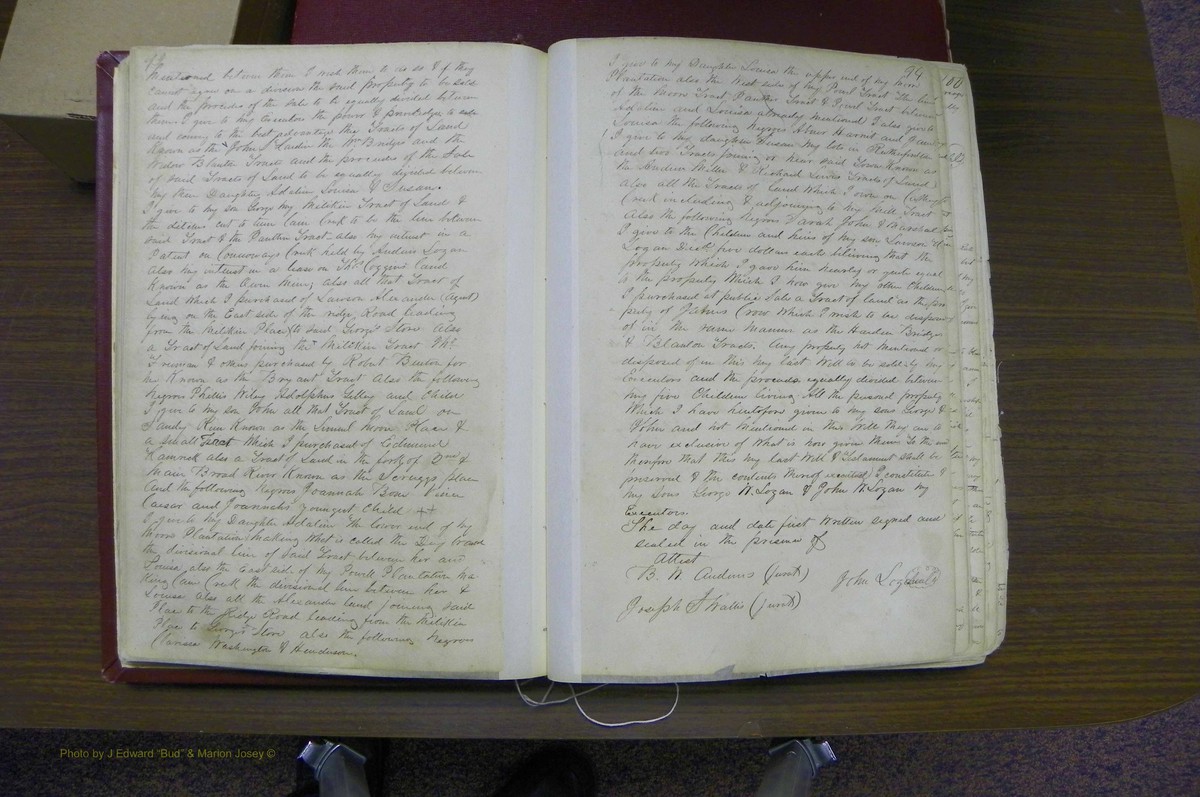 mentioned between them I wish them to do so & if they
cannot agree on a division the said property to be sold
and the procedes of the sale to be equally divided between
them I give to my Executors the power & priviledge to sell
and convey to the best advantage the Tracts of Land
known as the John Hardin the Wm Bridges and the
Widow Blanton Tracts and the procedes of the Sale
of said Tracts of Land to be equally divided between
my three Daughters Adeline Louisa & Susan.
I give to my son George my Melikin Tract of Land &
the
said Tract & the Panther Tract also my interest in a
Patent on Connoways Creek held by Anders Logan
Also my interest in a lease on Thos Coggins land
Known as the Mine also all that Tract of
Land which I purchased of Lawson Alexander (Agent)
lying on the East side of the ridge Road leading
from the Melikin Place to said Georges Store Also
a Tract of Land joining the Melikin Tract Wm
Freeman & others purchased by Robert Burton for
me Known as the Bryant Tract Also the following
Negroes Phillis Wiley Adolphus Gilley and Child
I give to my son John all that Tract of Land on
Sandy Run Known as the Lemuel Moore Place &
a small Tract Which I purchased of Edmund
Hamrick also a Tract of Land in the fork of 2nd &
Main Broad River Known as the Scruggs place
And the following Negroes Joannah Bone
Caesar and Joannahs youngest Child ++
I give to my Daughter Adeline the lower end of my
Moore Plantation making what is called the Big branch
the divisional line of said Tract between her and
Louisa also the East side of my Powell Plantation ma
King Cane Creek the divisional line between her &
Louisa also all the Alexander land joining said
Place to the Ridge Road leading from the Melikin
Place to Georges Store also the following Negroes
Clarissa Washington & Henderson.
94
I give to my Daughter Louisa the upper end of my Moore
Plantation also the West side of my Tract The
of the Moore Tract Panther Tract & Tract between
Adeline and Louisa already mentioned I also give to
Louisa the following Negroes Abner Harriet and
I give to my daughter Susan my lots in Rutherfordton
and two Tracts joining or near said Town Known as
the Andrew Miller & Richard Lewis Tracts of Land
also all the Tracts of Land Which I own on
Creek including & adjoining to my Mill Tract
Also the following Negroes Sarah John & Marshal
I give to the Children and heirs of my son Lawson
Logan Decd. five dollars each believing that the
property Which I gave him nearly or quite equal
to the property Which I now give my other Children
I purchased at public Sale a Tract of land as the pro
perty of James Crow Which I wish to be disposed
of in the same manner as the Hardin Bridges
& Blanton Tracts. Any property not mentioned or
disposed of in this my last Will to be sold by my
Executors and the proceeds equally divided between
my five Children living All the personal property
Which I have heretofore given to my sons George &
John and not mentioned in this Will they are to
have exclusive of What is now given them To the end
therefore that this my last Will & Testament shall be
preserved & the contents thereof executed I constitute &
my Sons George W. Logan & John W. Logan my
Executors.
The day and date first Written signed and
sealed in the presence of
Attest
B. W. Andrews (jurat)
John Logan (seal)
Joseph S Wallis (jurat)
100
Photo by J Edward "Bud" & Marion Josey ©